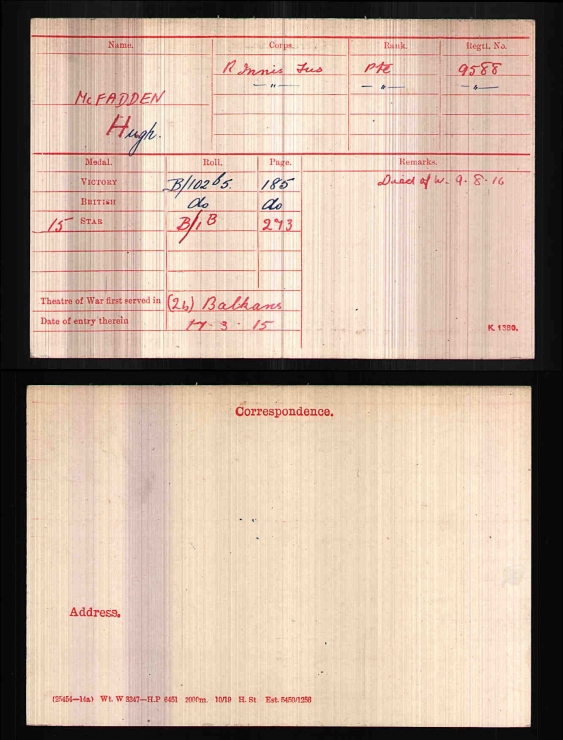 Name. Corps. Rank. Regtl. No.
R Innis Fus Pte 9588
—〃— —〃— —〃—
McFADDEN
Hugh.
Medal. Roll. Page. Remarks.
VICTORY B/102 B5. 185 Died of W. 9.8.16
BRITISH do do
15 STAR B/1 B 273
Theatre of War first served in (2b) Balkans
Date of entry therein 17-3-15
K. 1380.
Correspondence.
Address.
(25454—14a) Wt. W 3247—H.P 6451 2000m. 10/19 H. St Est. 5450/1256